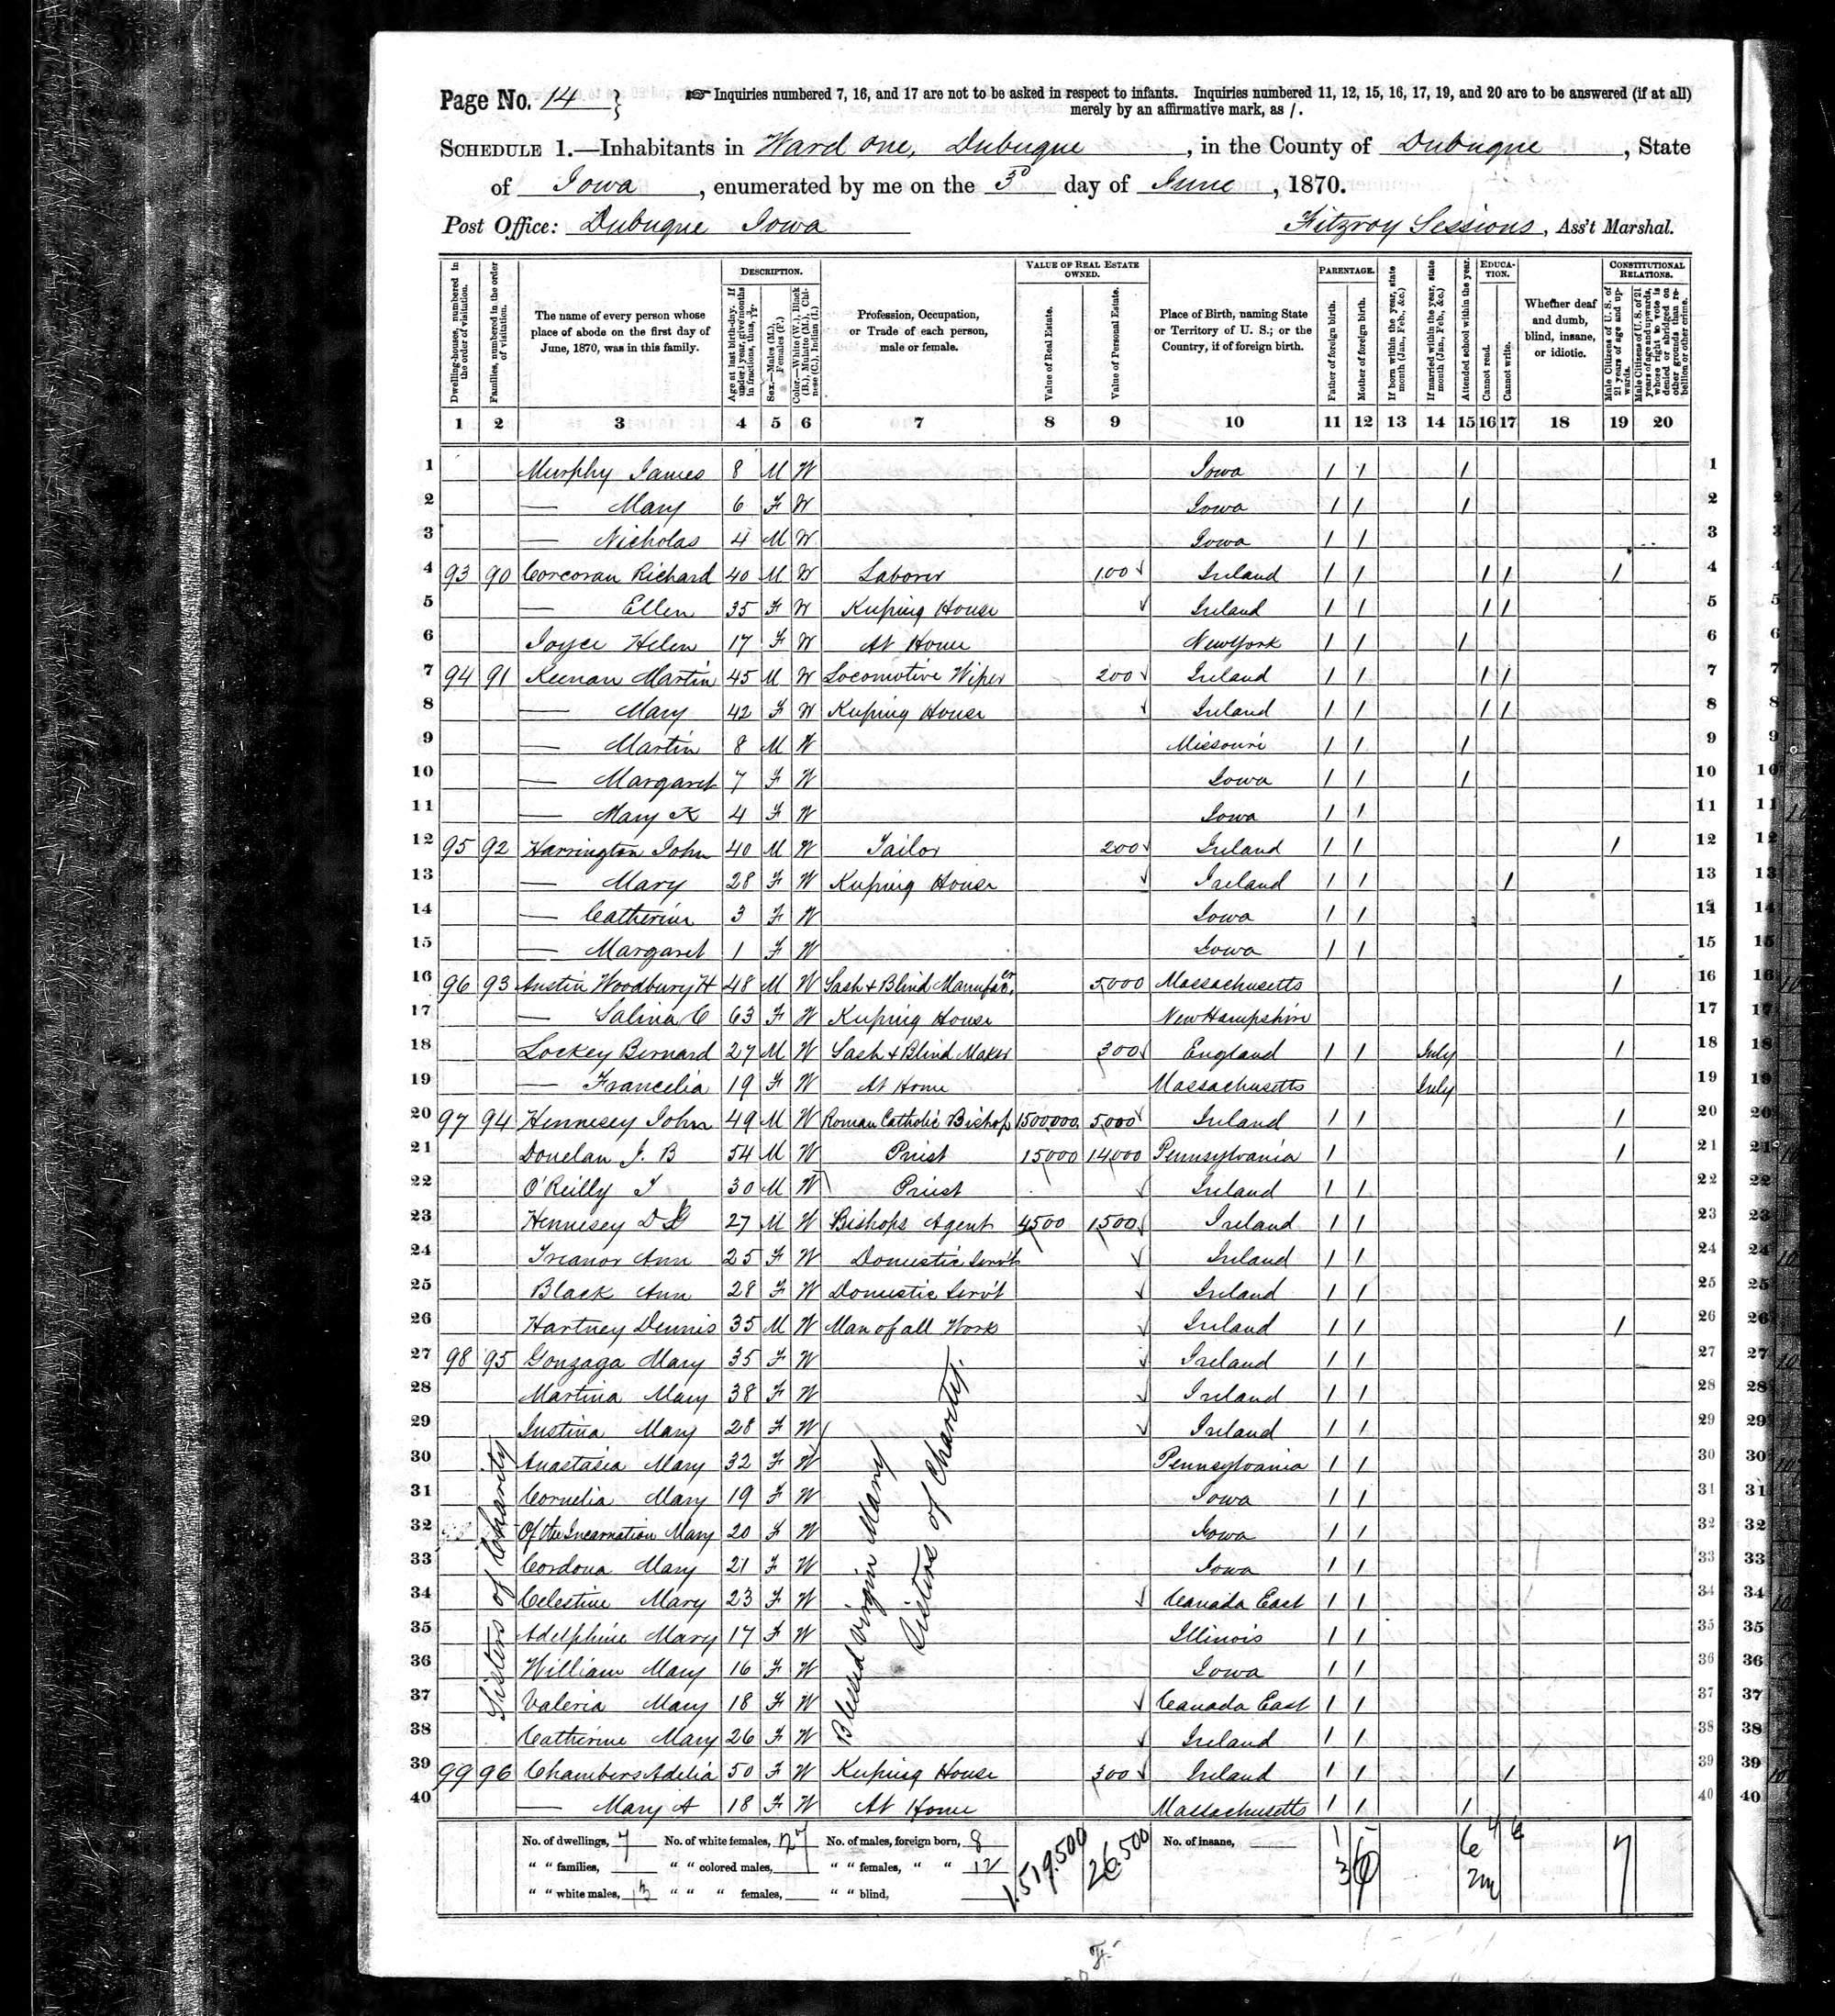 Page No. 14 }
☞ Inquiries numbered 7, 16, and 17 are not to be asked in respect to infants. Inquiries numbered 11, 12, 15, 16, 17, 19, and 20 are to be answered (if at all)
merely by an affirmative mark, as /.
SCHEDULE 1.—Inhabitants in Ward One, Dubuque, in the County of Dubuque, State
of Iowa, enumerated by me on the 3d day of June, 1870.
Post Office: Dubuque Iowa
Fitzroy Sessions, Ass't Marshal.
Dwelling-houses, numbered in the order of visitation.
Families, numbered in the order of visitation.
The name of every person whose place of abode on the first day of June, 1870, was in this family.
DESCRIPTION.
Age at last birth-day. If under 1 year, give months in fractions, thus, 3/12.
Sex.—Males (M.), Females (F.)
Color.—White (W.), Black (B.), Mulatto (M.), Chinese (C.), Indian (I.)
Profession, Occupation, or Trade of each person, male or female.
VALUE OF REAL ESTATE OWNED.
Value of Real Estate.
Value of Personal Estate.
Place of Birth, naming State or Territory of U. S.; or the Country, if of foreign birth.
PARENTAGE.
Father of foreign birth.
Mother of foreign birth.
If born within the year, state month (Jan., Feb., &c.)
If married within the year, state month (Jan., Feb., &c.)
Attended school within the year.
EDUCATION.
Cannot read.
Cannot write.
Whether deaf and dumb, blind, insane, or idiotic.
CONSTITUTIONAL RELATIONS.
Male Citizens of U. S. of 21 years of age and upwards.
Male Citizens of U. S. of 21 years of age and upwards, whose right to vote is denied or abridged on other grounds than rebellion or other crime.
1 2 3 4 5 6 7 8 9 10 11 12 13 14 15 16 17 18 19 20
1 Murphy James 8 M W Iowa / / / 1
2 — Mary 6 F W Iowa / / / 2
3 — Nicholas 4 M W Iowa / / 3
4 93 90 Corcoran Richard 40 M W Laborer 100 Ireland / / / / / 4
5 — Ellen 35 F W Keeping House Ireland / / / / 5
6 Joyce Helen 17 F W At Home New York / / / 6
7 94 91 Keenan Martin 45 M W Locomotive Wiper 200 Ireland / / / / 7
8 — Mary 42 F W Keeping House Ireland / / / / 8
9 — Martin 8 M W Missouri / / / 9
10 — Margaret 7 F W Iowa / / / 10
11 — Mary K 4 F W Iowa / / 11
12 95 92 Harrington John 40 M W Tailor 200 Ireland / / / 12
13 — Mary 28 F W Keeping House Ireland / / / 13
14 — Catherine 3 F W Iowa / / 14
15 — Margaret 1 F W Iowa / / 15
16 96 93 Austin Woodbury H 48 M W Sash + Blind Manufacr. 5,000 Massachusetts / 16
17 — Salina C 63 F W Keeping House New Hampshire 17
18 Lockey Bernard 27 M W Sash + Blind Maker 300 England / / July / 18
19 — Francelia 19 F W At Home Massachusetts July 19
20 97 94 Hennesey John 49 M W Roman Catholic Bishop 1500,000 5,000 Ireland / / / 20
21 Donelan J. B 54 M W Priest 15,000 14,000 Pennsylvania / / 21
22 O'Reilly T 30 M W Priest Ireland / / 22
23 Hennesey D 27 M W Bishops Agent 4500 1500 Ireland / / 23
24 Treanor Ann 25 F W Domestic Serv't Ireland / / 24
25 Black Ann 28 F W Domestic Serv't Ireland / / 25
26 Hartney Dennis 35 M W Man of all Work Ireland / / / 26
27 98 95 Gonzaga Mary 35 F W Ireland / / 27
28 Martina Mary 38 F W Ireland / / 28
29 Justina Mary 28 F W Ireland / / 29
30 Anastasia Mary 32 F W Pennsylvania / / 30
31 Cornelia Mary 19 F W Iowa / / 31
32 Of the Incarnation Mary 20 F W Iowa / / 32
33 Cordona Mary 21 F W Iowa / / 33
34 Celestine Mary 23 F W Canada East / / 34
35 Adelphine Mary 17 F W Illinois / / 35
36 William Mary 16 F W Iowa / / 36
37 Valeria Mary 18 F W Canada East / / 37
38 Catherine Mary 26 F W Ireland / / 38
Sisters of Charity
Blessed Virgin Mary
Sisters of Charity.
39 99 96 Chambers Adelia 50 F W Keeping House 300 Ireland / / / 39
40 — Mary A 18 F W At Home Massachusetts / / / 40
No. of dwellings, 7 No. of white females, 27 No. of males, foreign born, 8 1,519,500 26,500 No. of insane,
" " families, " " colored males, " " females, " " 12
" " white males, 13 " " " females, " " blind,